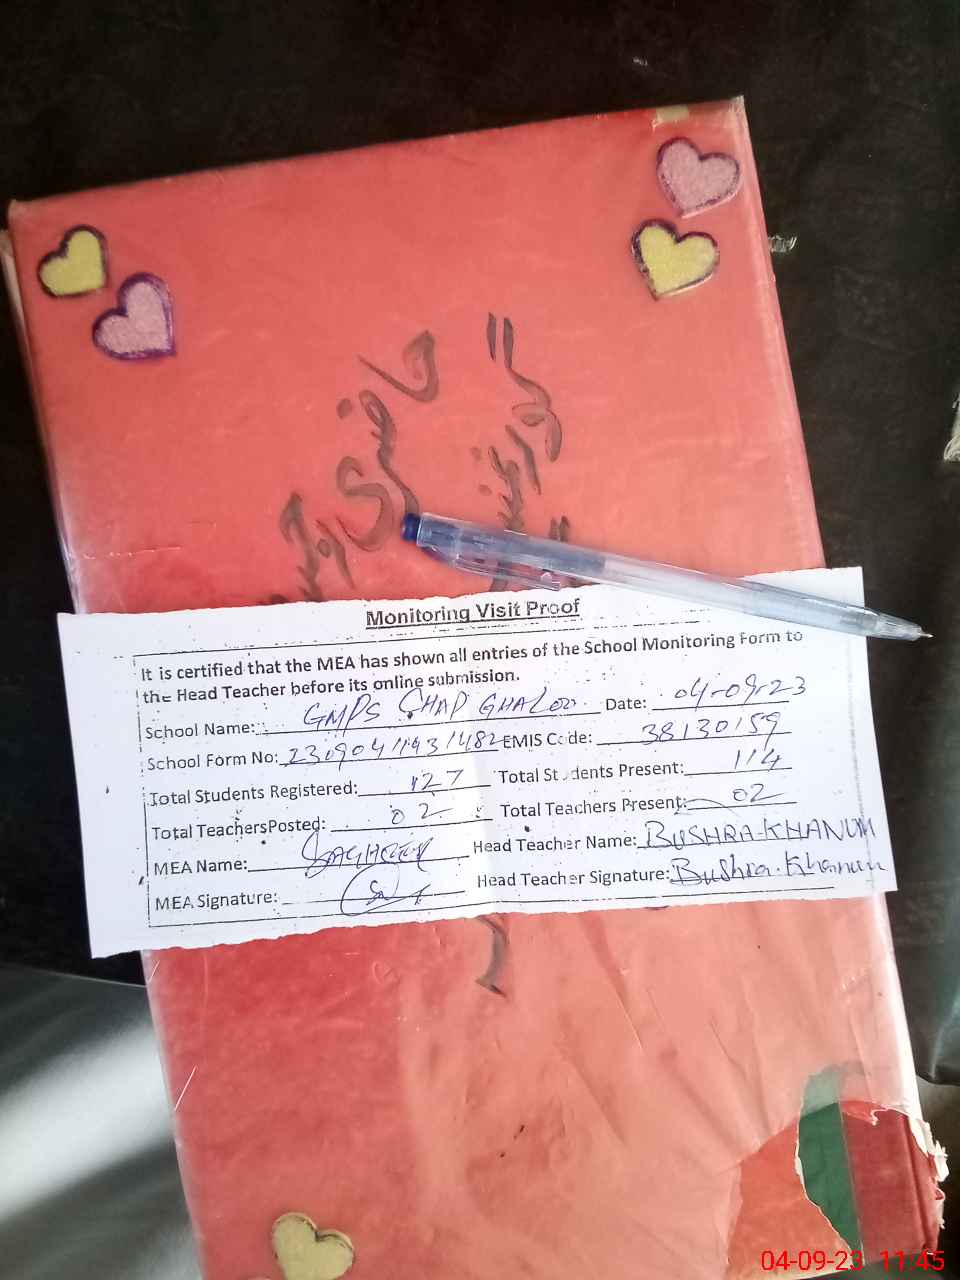 حاضری
Monitoring Visit Proof
It is certified that the MEA has shown all entries of the School Monitoring Form to
the Head Teacher before its online submission.
School Name: GMPS CHAP GHALOO Date: 04-09-23
School Form No: EMIS Code: 38130159
Total Students Registered: 127 Total Students Present: 114
Total TeachersPosted: 02 Total Teachers Present: 02
MEA Name: Head Teacher Name: BUSHRA-KHANUM
MEA Signature: Head Teacher Signature: Bushra. Khanum
04-09-23 11:45